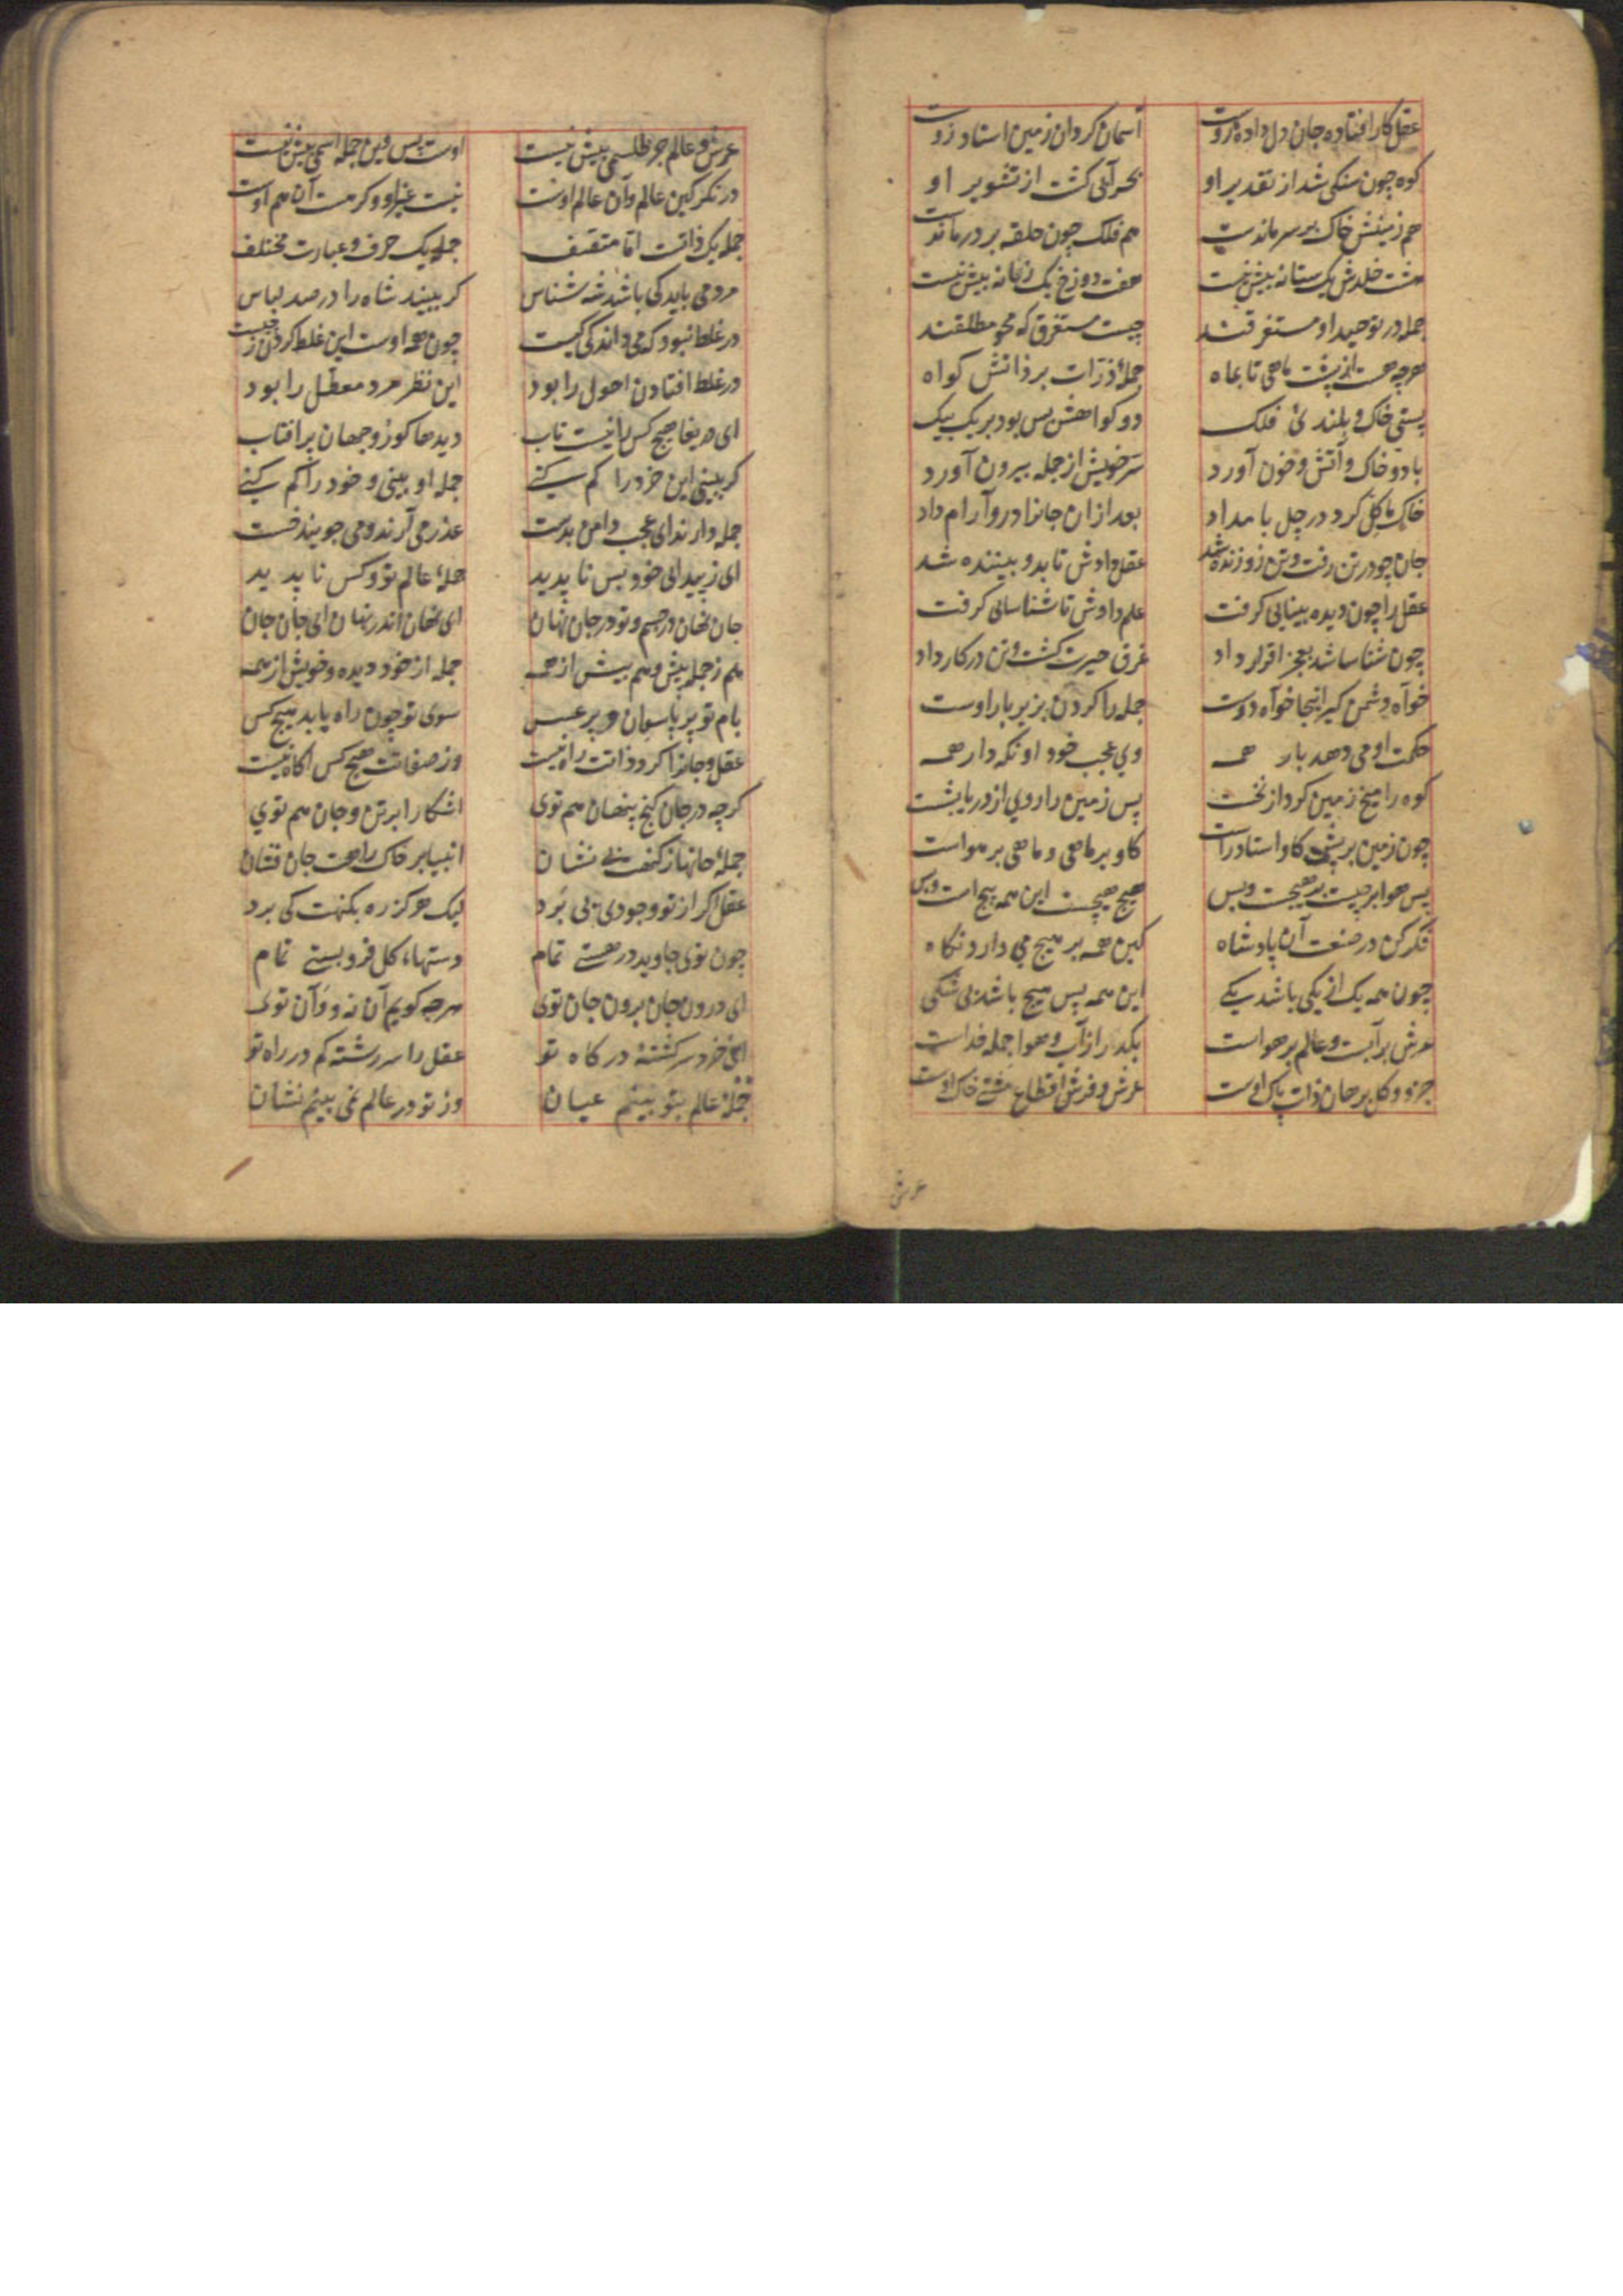 عقل کار افتاده جان دل داده زوست آسمان کردان زمین استاد زوست
کوه چون سنکی شد از تقدیر او بحر آبی کشت از تشویر او
هم زمینش خاک بر سر ماندست هم فلک چون حلقه بر در ماندست
هشت خلدش یک ستانه بیش نیست هفت دوزخ یک زبانه بیش نیست
جمله در توحید او مستغرقند چیست مستغرق که محو مطلقند
هرچه هست از پشت ماهی تا بماه جملهٔ ذرات بر ذاتش کواه
پستی خاک و بلندیٔ فلک دو کواهش بس بود بر یک بیک
با دو خاک و آتش و خون آورد سر خویش از جمله بیرون آورد
خاک ما کل کرد در چل بامداد بعد از ان جانرا درو آرام داد
جان چو در تن رفت و تن زو زنده شد عقل دادش تا بدو بیننده شد
عقل را چون دیده بینایی کرفت علم دادش تا شناسایی کرفت
چون شناسا شد بعجز اقرار داد غرق حیرت کشت و تن در کار داد
خواه دشمن کیر اینجا خواه دوست جمله را کردن بزیر بار اوست
حکمت او می دهد بار همه وی عجب خود او نکه دار همه
کوه را میخ زمین کرد از نخست پس زمین را روی از دریا بشست
چون زمین بر پشت کاو استاد راست کاو بر ماهی و ماهی بر هواست
پس هوا بر چیست بر هیچست و بس هیچ هیچست این همه هیچ است و بس
فکر کن در صنعت آن پادشاه کین همه بر هیچ می دارد نکاه
چون همه یک از یکی باشد یکی این همه پس هیچ باشد بی شکی
عرش بر آبست و عالم بر هواست بکذر از آب و هوا جمله خداست
جزو و کل برهان ذات پاک اوست عرش و فرش اقطاع مشتی خاک اوست
عرش
عرش و عالم جز طلسمی بیش نیست اوست بس وین جمله اسمی بیش نیست
در نکر کین عالم و آن عالم اوست نیست غیر او و کر هست آن هم اوست
جمله یک ذاتست اما متصف جمله یک حرف و عبارت مختلف
مردمی باید کی باشد شه شناس کر ببیند شاه را در صد لباس
در غلط نبود که می داند کی کیست چون همه اوست این غلط کردن ز چیست
در غلط افتادن احول را بود این نظر مرد معطل را بود
ای دریغا هیچ کس را نیست تاب دیدها کور و جهان پر افتاب
کر ببینی این خرد را کم کنی جمله او بینی و خود را کم کنی
جمله دارند ای عجب دامن بدست عذر می آرند و می جویند هست
ای ز پیدایی خود بس ناپدید جملهٔ عالم تو و کس ناپدید
جان نهان در جسم و تو در جان نهان ای نهان اندر نهان ای جان جان
هم ز جمله پیش و هم بیش از همه جمله از خود دیده و خویش از همه
بام تو پر پاسبان و پر عسس سوی تو چون راه یابد هیچ کس
عقل و جانرا کرد ذاتت راه نیست وز صفاتت هیچ کس اکاه نیست
کرچه در جان کنج پنهان هم توی اشکارا بر تن و جان هم توی
جملهٔ جانها ز کنهت بی نشان انبیا بر خاک راهت جان فشان
عقل اکر از تو وجودی پی برد لیک هرکز ره بکنهت کی برد
چون توی جاوید در هستی تمام دستها کل فرو بستی تمام
ای درون جان برون جان توی هرچه کویم آن نه و وآن توی
ای خرد سر کشتهٔ درکاه تو عقل را سر رشته کم در راه تو
جملهٔ عالم بتو بینم عیان وز تو در عالم نمی بینم نشان